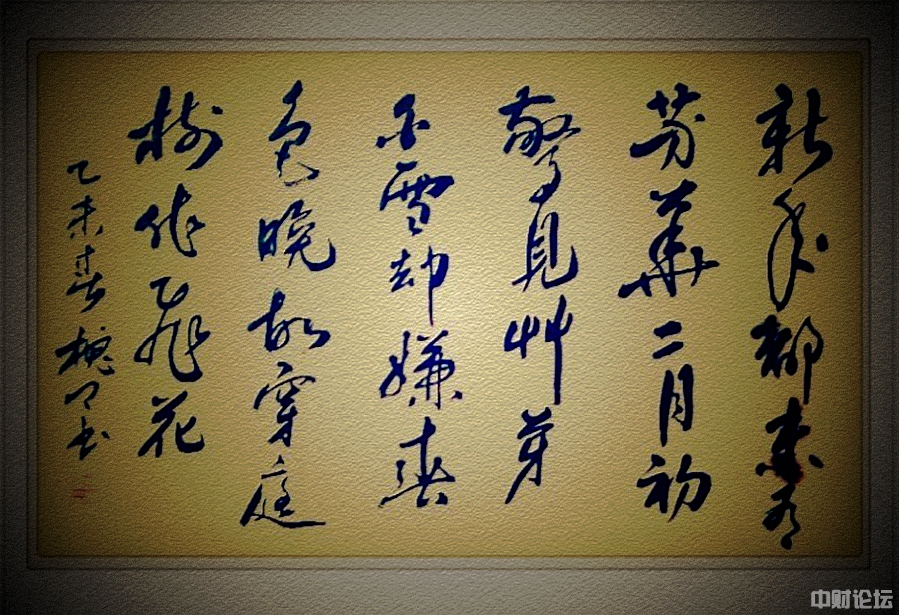 新年都未有
芳華二月初
驚見艸芽
白雪却嫌春
色晚故穿庭
樹作飛花
乙未春书
中财论坛